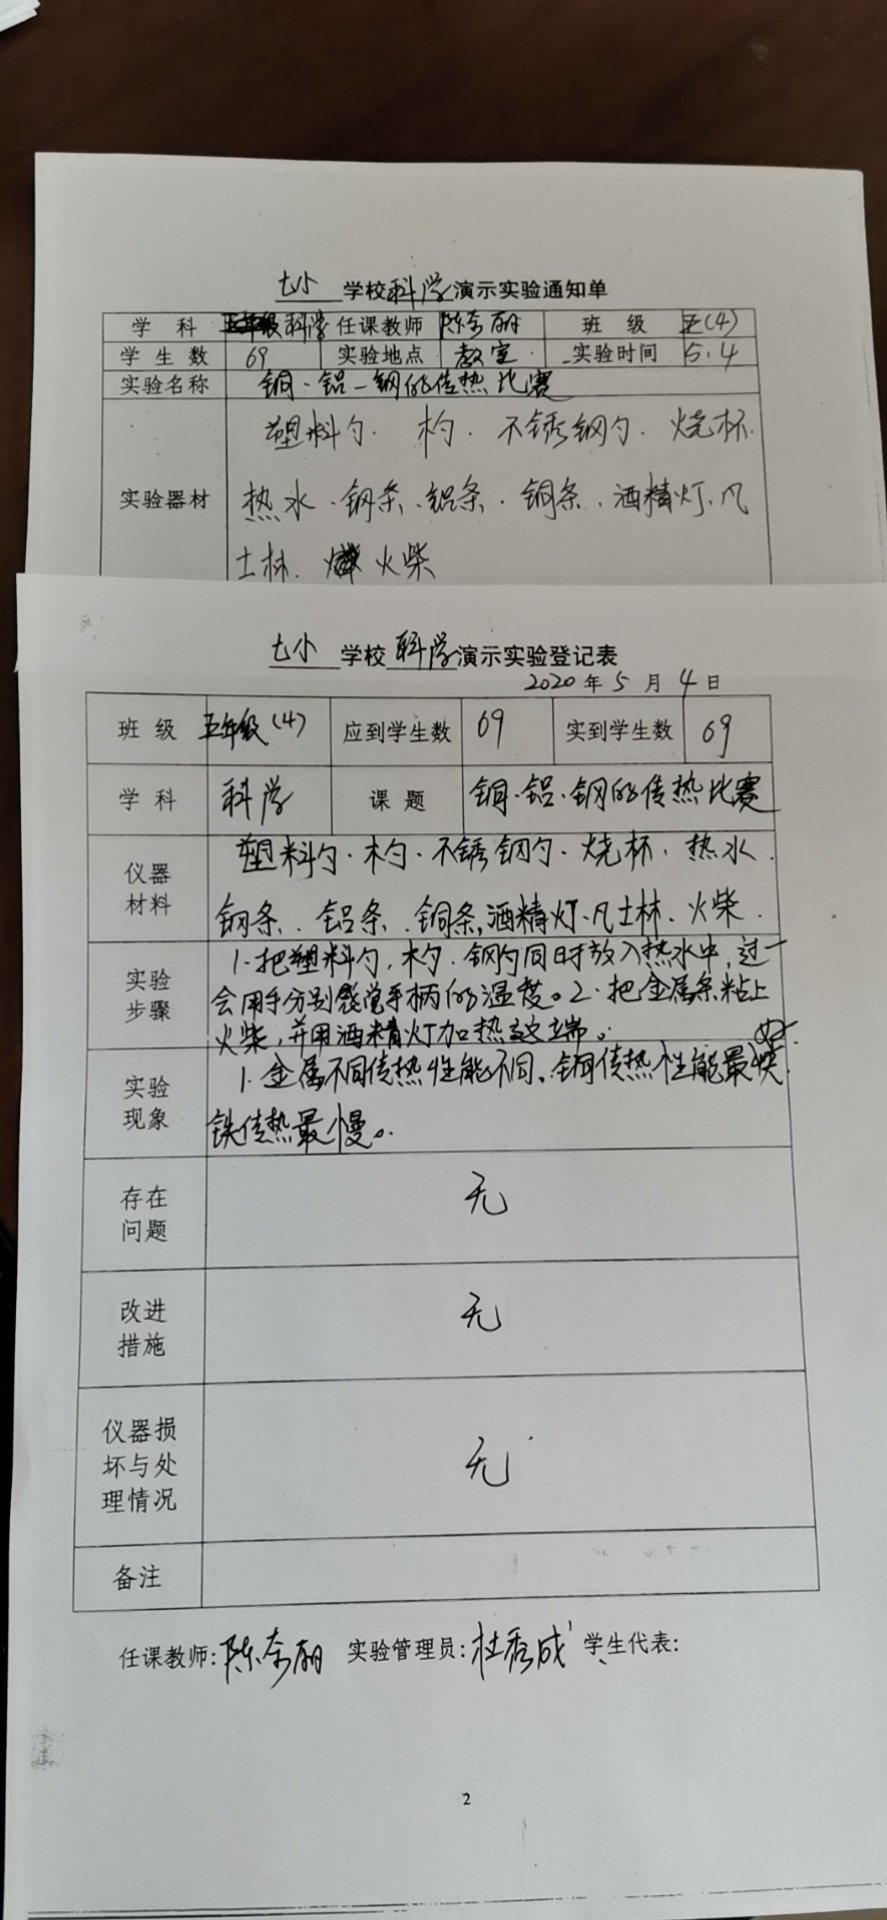 七小 学校科学演示实验通知单
学 科 科学 任课教师 陈奈丽 班 级 五(4)
学 生 数 69 实验地点 教室 实验时间 5.4
实验名称 铜·铝-钢的传热比赛
塑料勺. 木勺. 不锈钢勺. 烧杯.
实验器材 热水.钢条、铝条.铜条.酒精灯.凡
士林. 火柴
七小 学校 科学 演示实验登记表
2020年5月4日
班 级 五年级(4) 应到学生数 69 实到学生数 69
学 科 科学 课 题 铜.铝.钢的传热比赛
仪器材料 塑料勺.木勺.不锈钢勺.烧杯.热水.
钢条.铝条.铜条,酒精灯.凡士林.火柴.
实验步骤 1.把塑料勺,木勺.钢勺同时放入热水中,过一
会用手分别感觉手柄的温度。2.把金属条粘上
火柴,并用酒精灯加热这端。
实验现象 1.金属不同传热性能不同。铜传热性能最好.
铁传热最慢。
存在问题 无
改进措施 无
仪器损坏与处理情况 无
备注
任课教师:陈奈丽 实验管理员:杜秀成 学生代表:
2